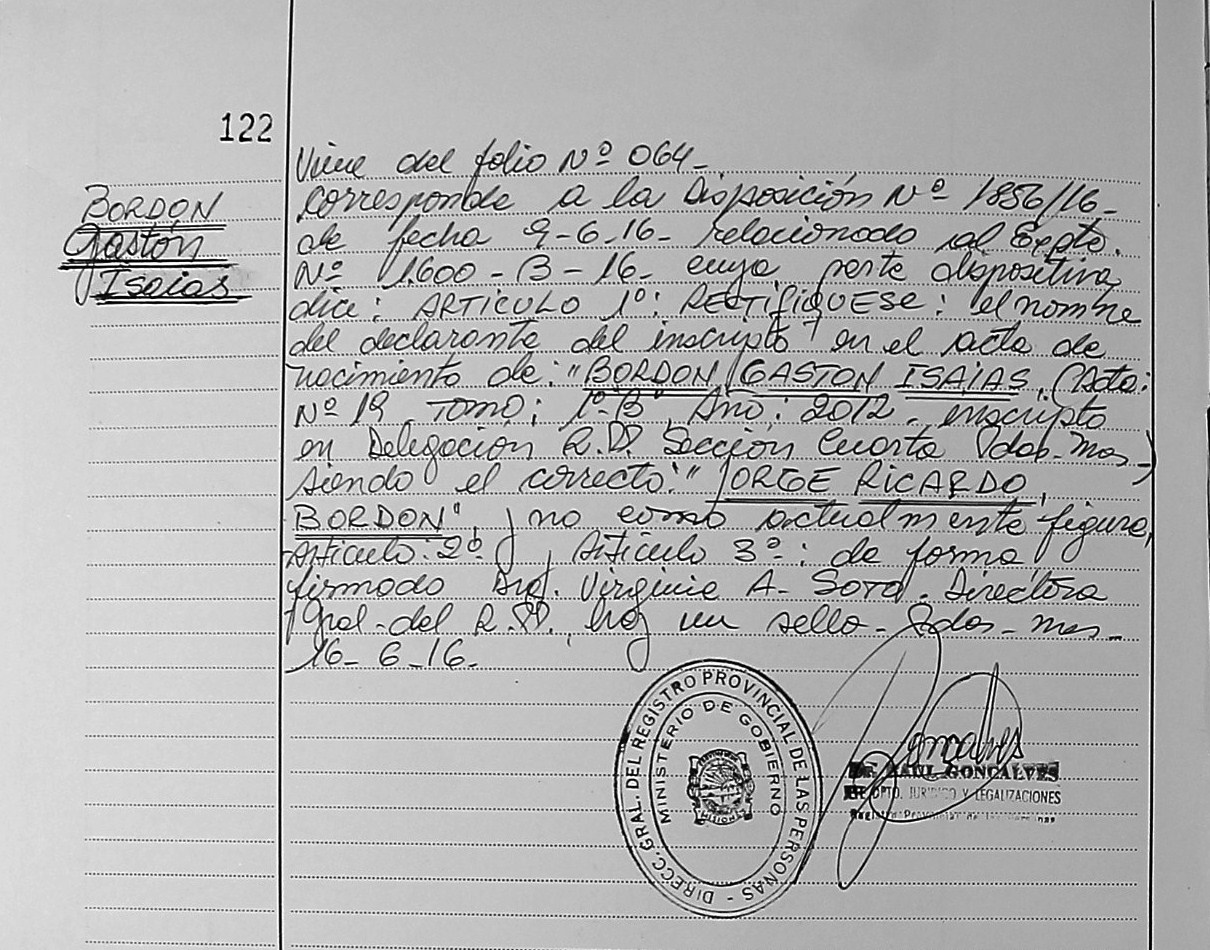 122
Viene del folio Nº 064-
BORDON
Gastón
Isaias
corresponde a la Disposición Nº 1886/16-
de fecha 9-6-16- relacionado al Expte.
Nº 1.600-B-16- cuya parte dispositiva
dice: ARTICULO 1º: RECTIFIQUESE: el nombre
del declarante del inscripto en el acta de
nacimiento de: "BORDON GASTON ISAIAS (Acta:
Nº 19 Tomo: 1º B" Año: 2012, inscripto
en Delegación R.P.P. Sección Cuarta Pdas-Mnes-)
siendo el correcto: "JORGE RICARDO
BORDON", y no como actualmente figura,
Articulo: 2º y Articulo 3º: de forma
firmado Virginia A. Soto. Directora
Gral-del R.P.P. hay un sello- Pdas-mnes-
16-6-16-
DIRECC. GRAL. DEL REGISTRO PROVINCIAL DE LAS PERSONAS -
MINISTERIO DE GOBIERNO
MISIONES
Goncalves
DR. RAUL GONCALVES
DPTO. JURIDICO Y LEGALIZACIONES
Registro Provincial de las Personas